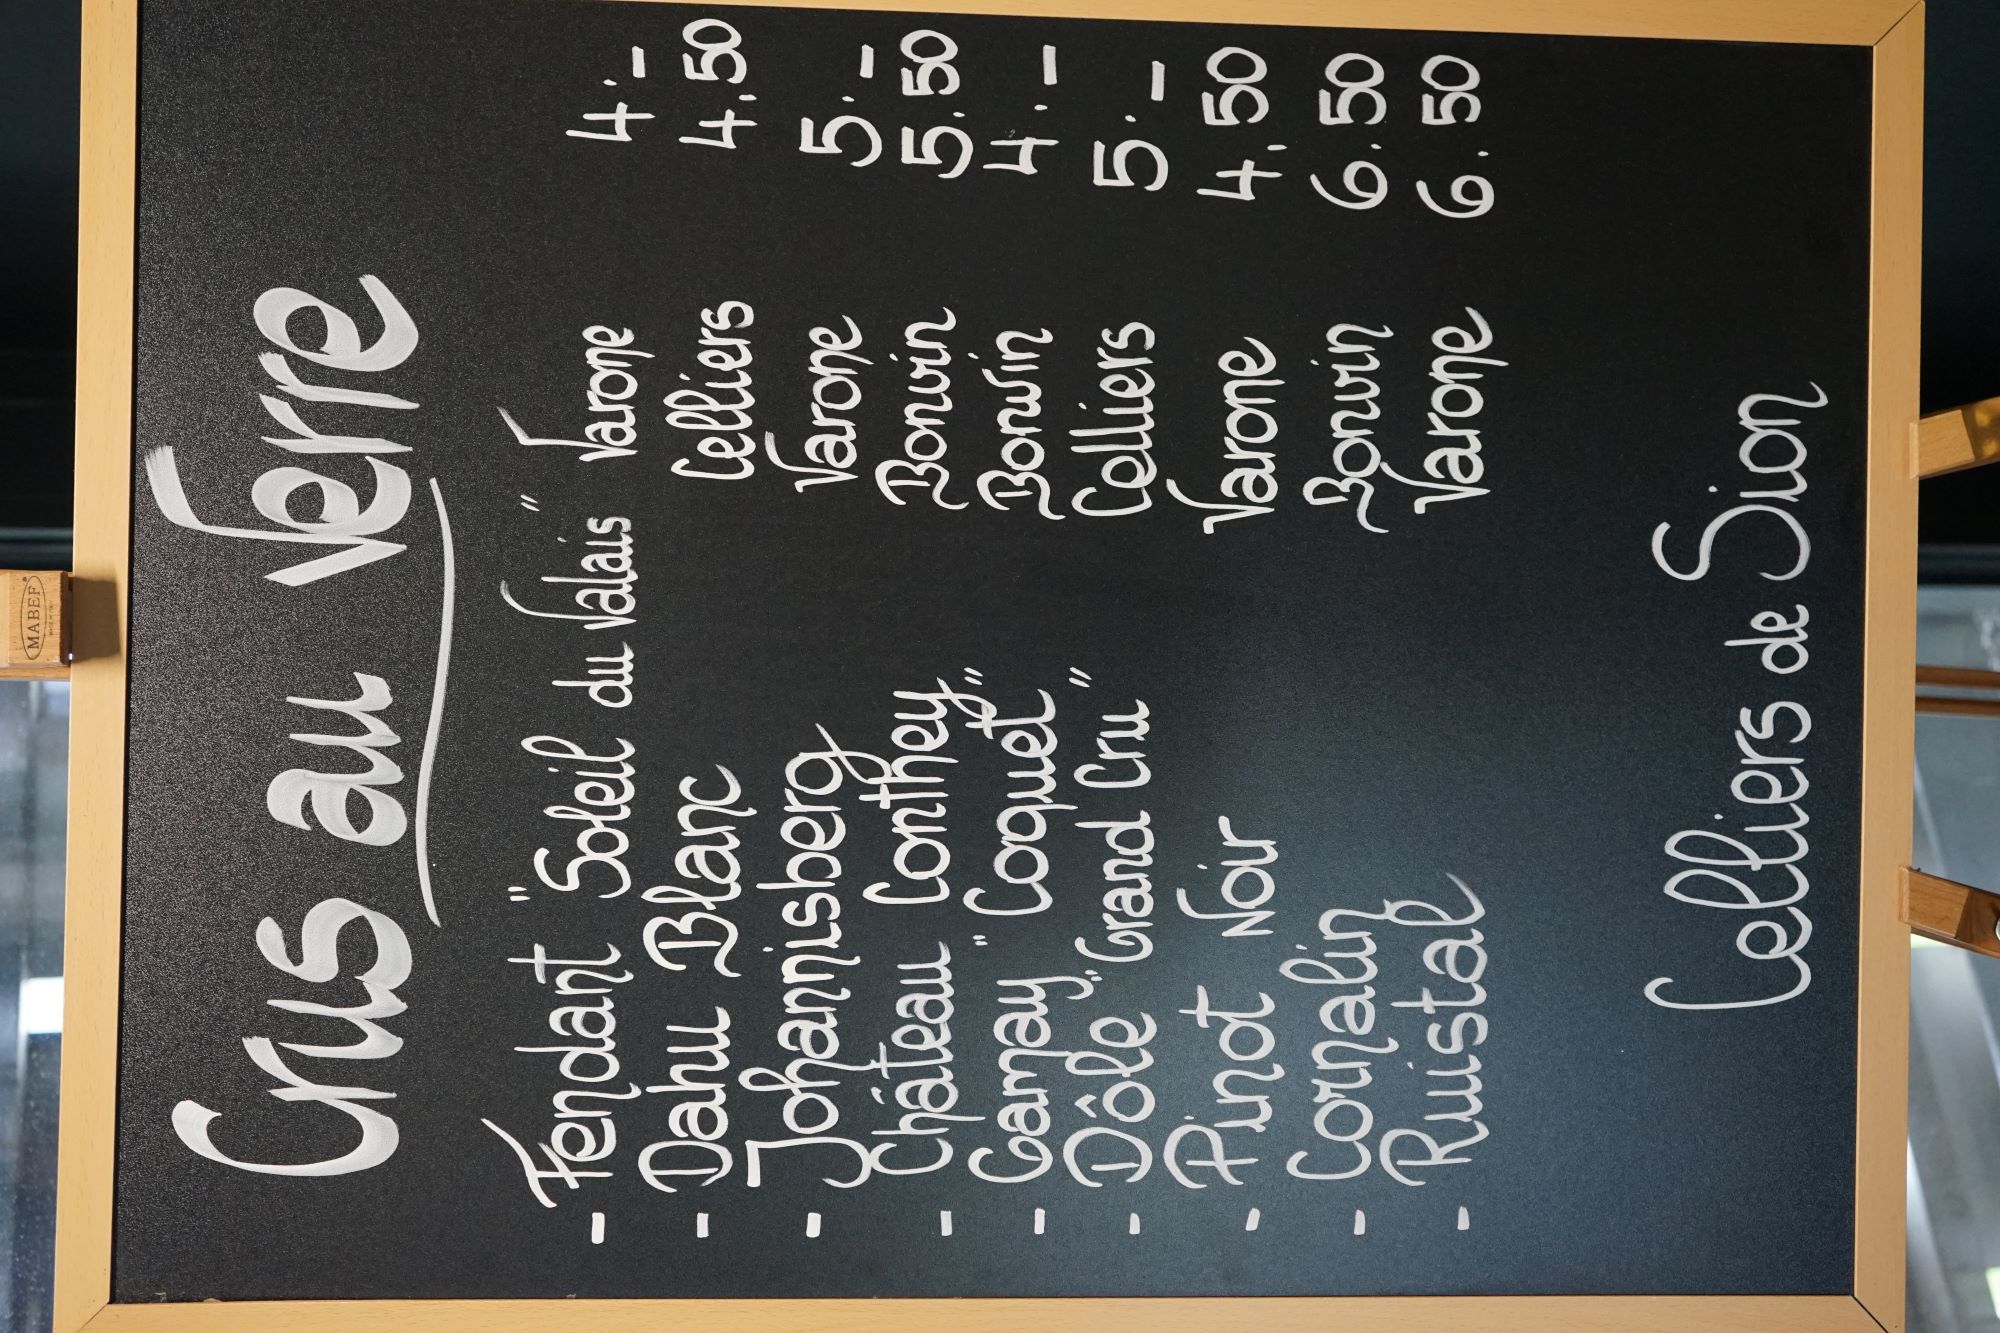 Crus au Verre
- Fendant "Soleil du Valais" Varone 4.-
- Dahu Blanc Celliers 4.50
- Johannisberg Varone 5.-
- Château Conthey Bonvin 5.50
- Gamay "Coquet" Bonvin 4.-
- Dôle "Grand Cru" Celliers 5.-
- Pinot Noir Varone 4.50
- Cornalin Bonvin 6.50
- Ruistal Varone 6.50
Celliers de Sion
MABEF